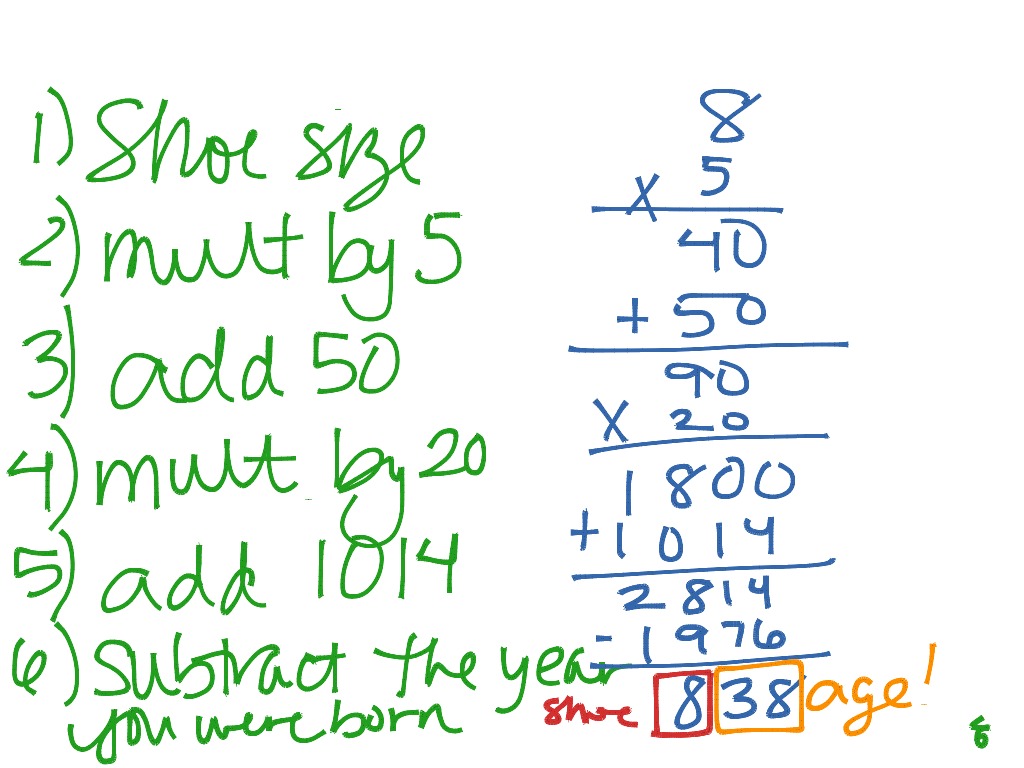 1) Shoe size
2) mult by 5
3) add 50
4) mult by 20
5) add 1014
6) Subtract the year
you were born
8
x 5
40
+ 50
90
x 20
1800
+ 1014
2814
- 1976
shoe 838 age!